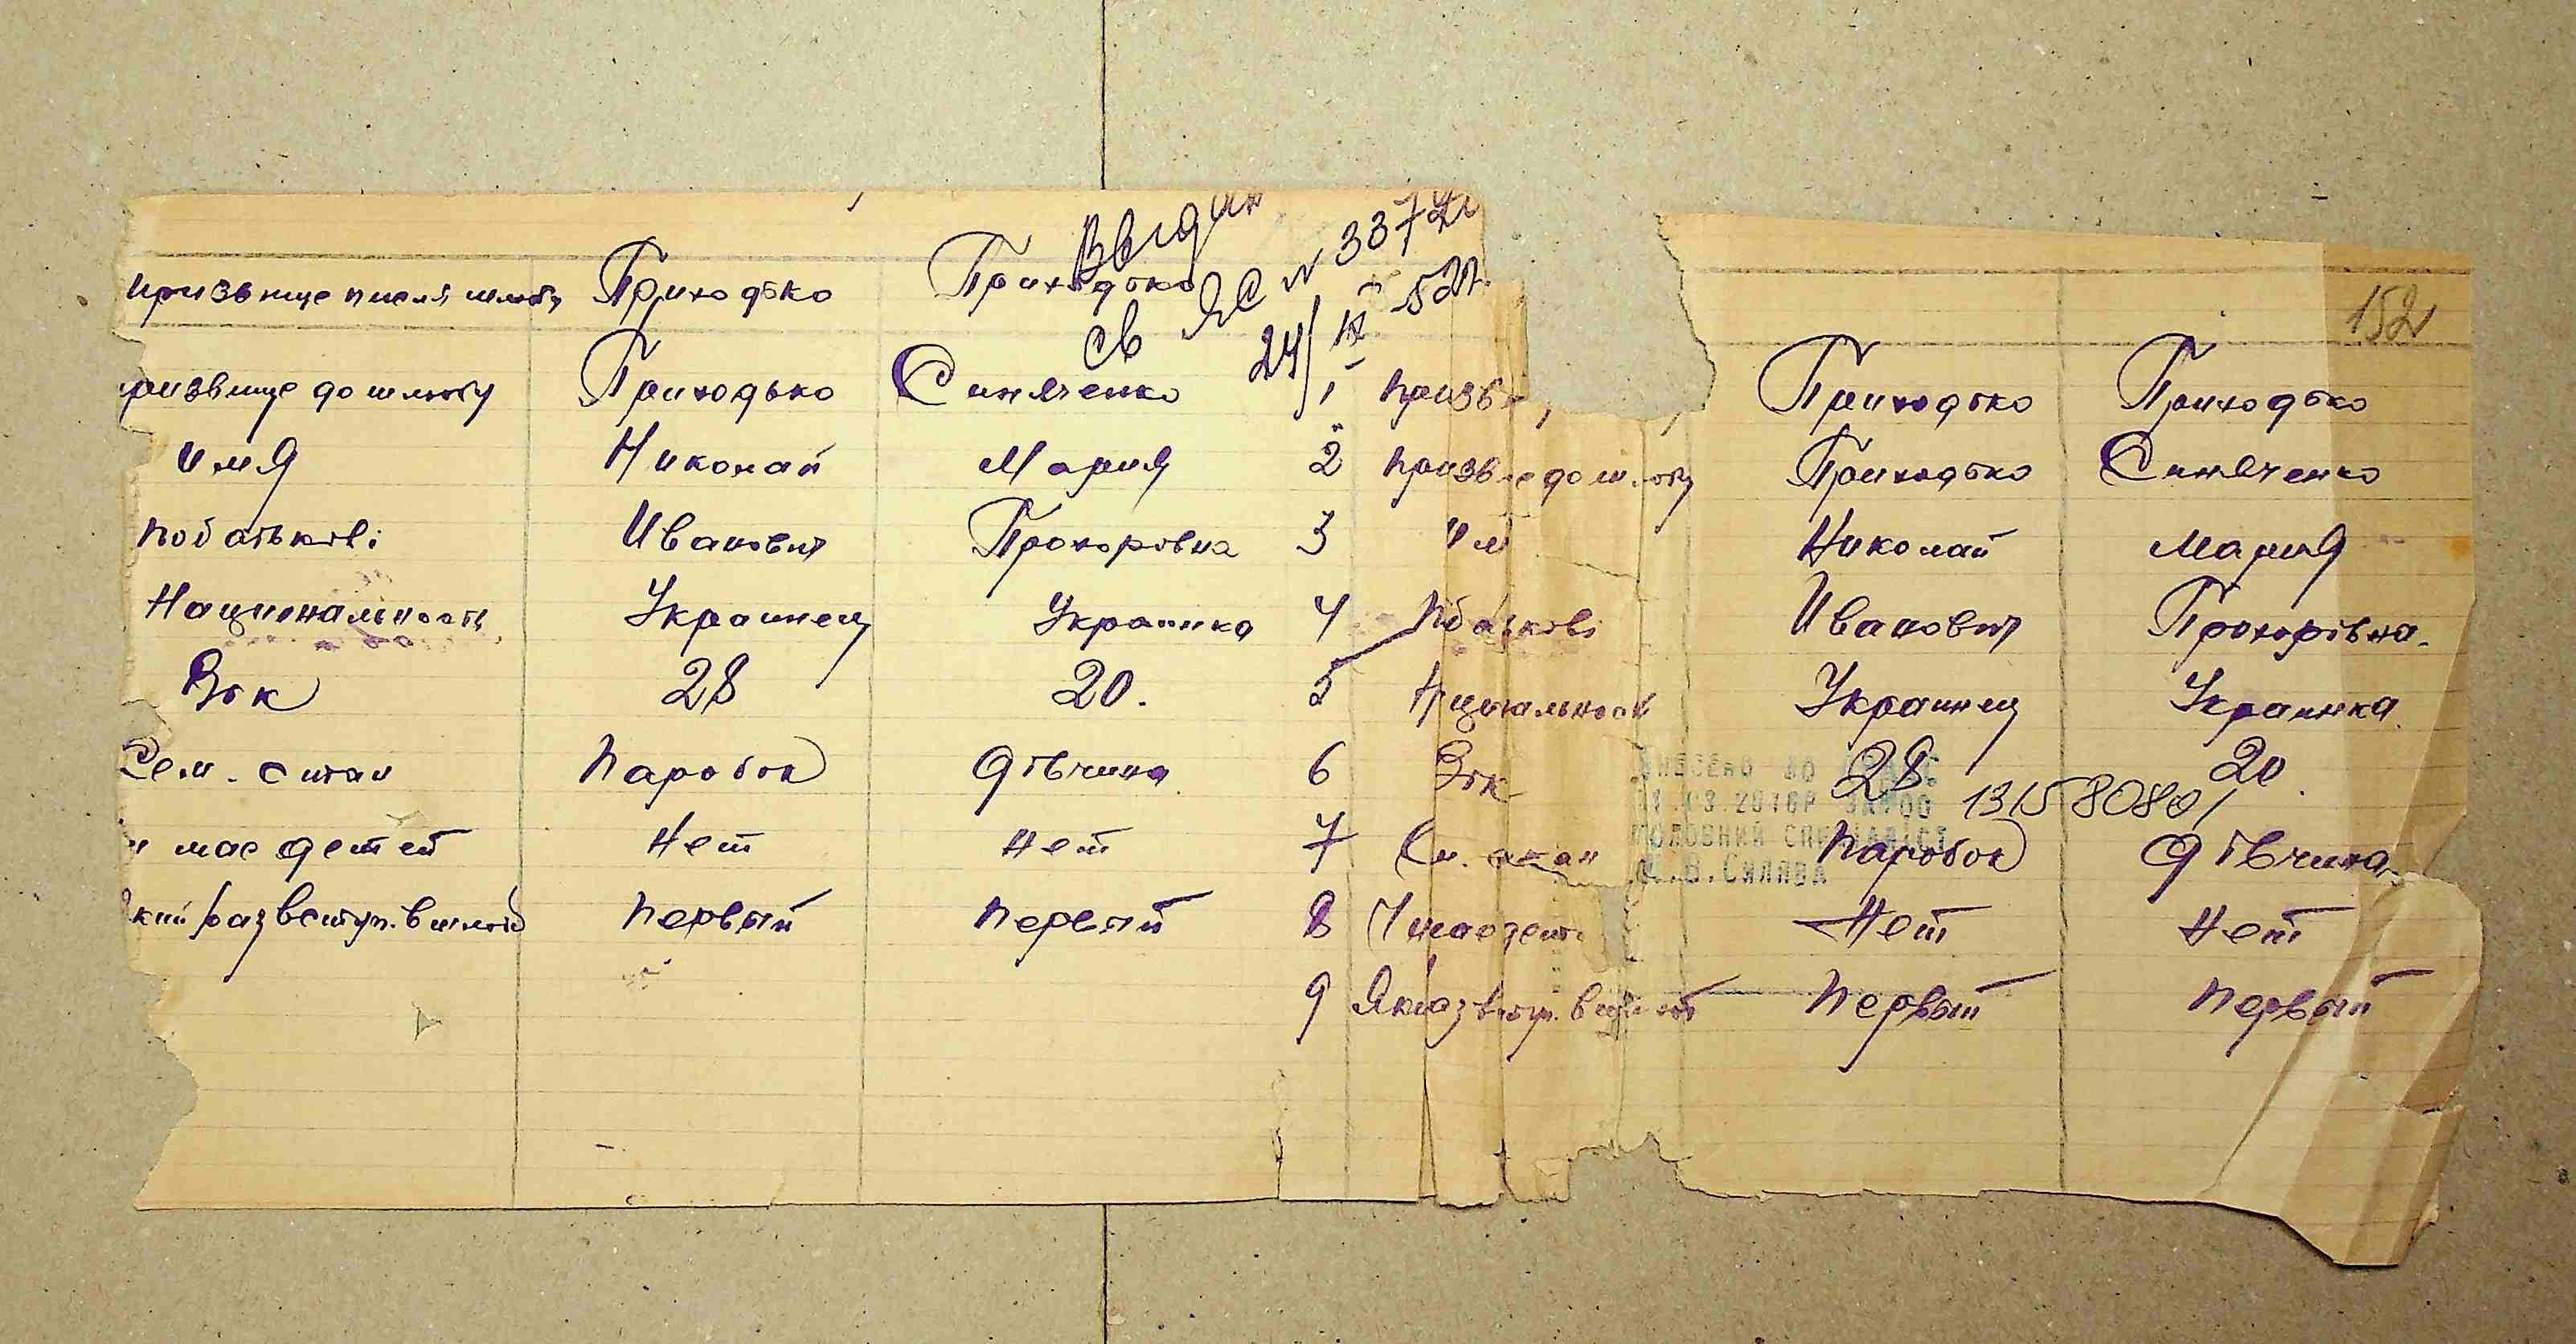 Выдан
св ЯС № 3372
24/IX 52г.
152
призвище писля шлюбу Приходько Приходько
призвище до шлюбу Приходько Синяченко
имя Николай Мария
по батькові Иванович Прохоровна
Национальность Украинец Украинка
Вік 28 20.
Сем. стан Паробок Дівчина
мае детей Нет Нет
який раз вступ. в шлюб Первый Первый
1 Призв Приходько Приходько
2 Призв е до шлюбу Приходько Синяченко
3 Им Николай Мария
4 По ба кові Иванович Прохорівна
5 Н ц нальность Украинец Украинка
6 Вік 28 20
7 стан Паробок Дівчина
8 Чи мае дет Нет Нет
9 Як раз вступ. в ш юб Первый Первый
ВНЕСЕНО ДО
.03.2010Р ЗА №00 13158080
ГОЛОВНИЙ СПЕЦІАЛІСТ
.В.Силява